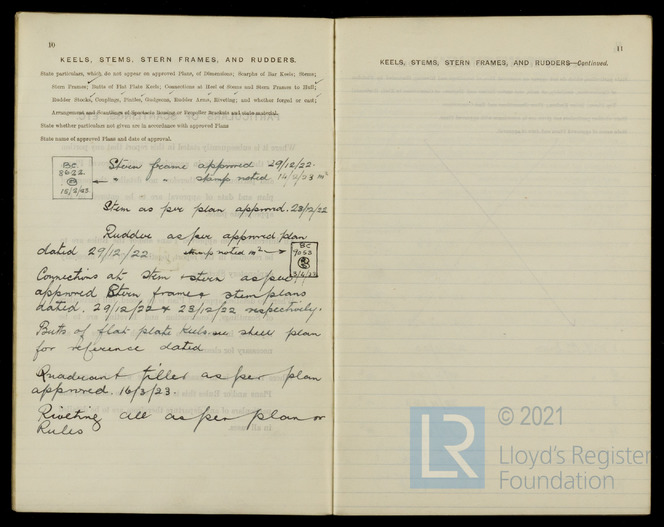 10
KEELS, STEMS, STERN FRAMES, AND RUDDERS.
State particulars, which do not appear on approved Plans, of Dimensions; Scarphs of Bar Keels; Stems;
Stern Frames; Butts of Flat Plate Keels; Connections at Heel of Stems and Stern Frames to Hull;
Rudder Stocks, Couplings, Pintles, Gudgeons, Rudder Arms, Riveting; and whether forged or cast;
Arrangement and Scantlings of Spectacle Bossing or Propeller Brackets and state material.
State whether particulars not given are in accordance with approved Plans
State name of approved Plans and date of approval.
BC
8632
15/2/23
Stern frame approved 29/12/22.
" " stamp noted 14/2/23
Stem as per plan approved. 23/12/22
Rudder as per approved plan
dated 29/12/22 stamp noted
BC
9053
Connections at stem & stern as per
approved Stern frame & stem plans
dated. 29/12/22 & 23/12/22 respectively.
Butts of flat plate keels see shell plan
for reference dated
Quadrant tiller as per plan
approved. 16/3/23.
Riveting all as per plan or
Rules
11
KEELS, STEMS, STERN FRAMES, AND RUDDERS—Continued.
LR
© 2021
Lloyd's Register
Foundation